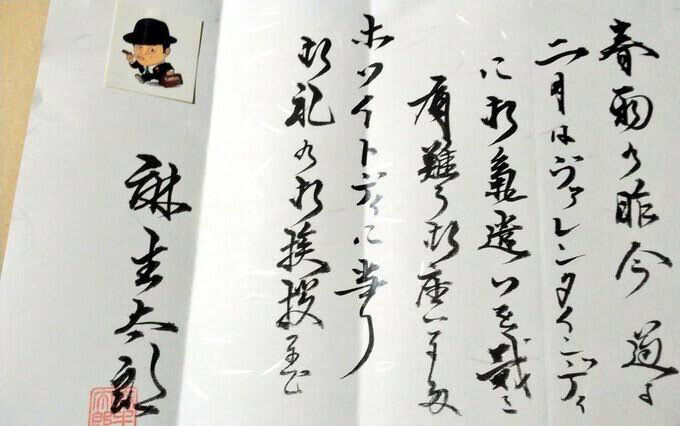 春雨の昨今
二月はヴァレンタインデイ
に御氣遣いを戴き
有難う御座いました
ホワイトデイに当り
御礼の御挨拶迄
麻生太郎